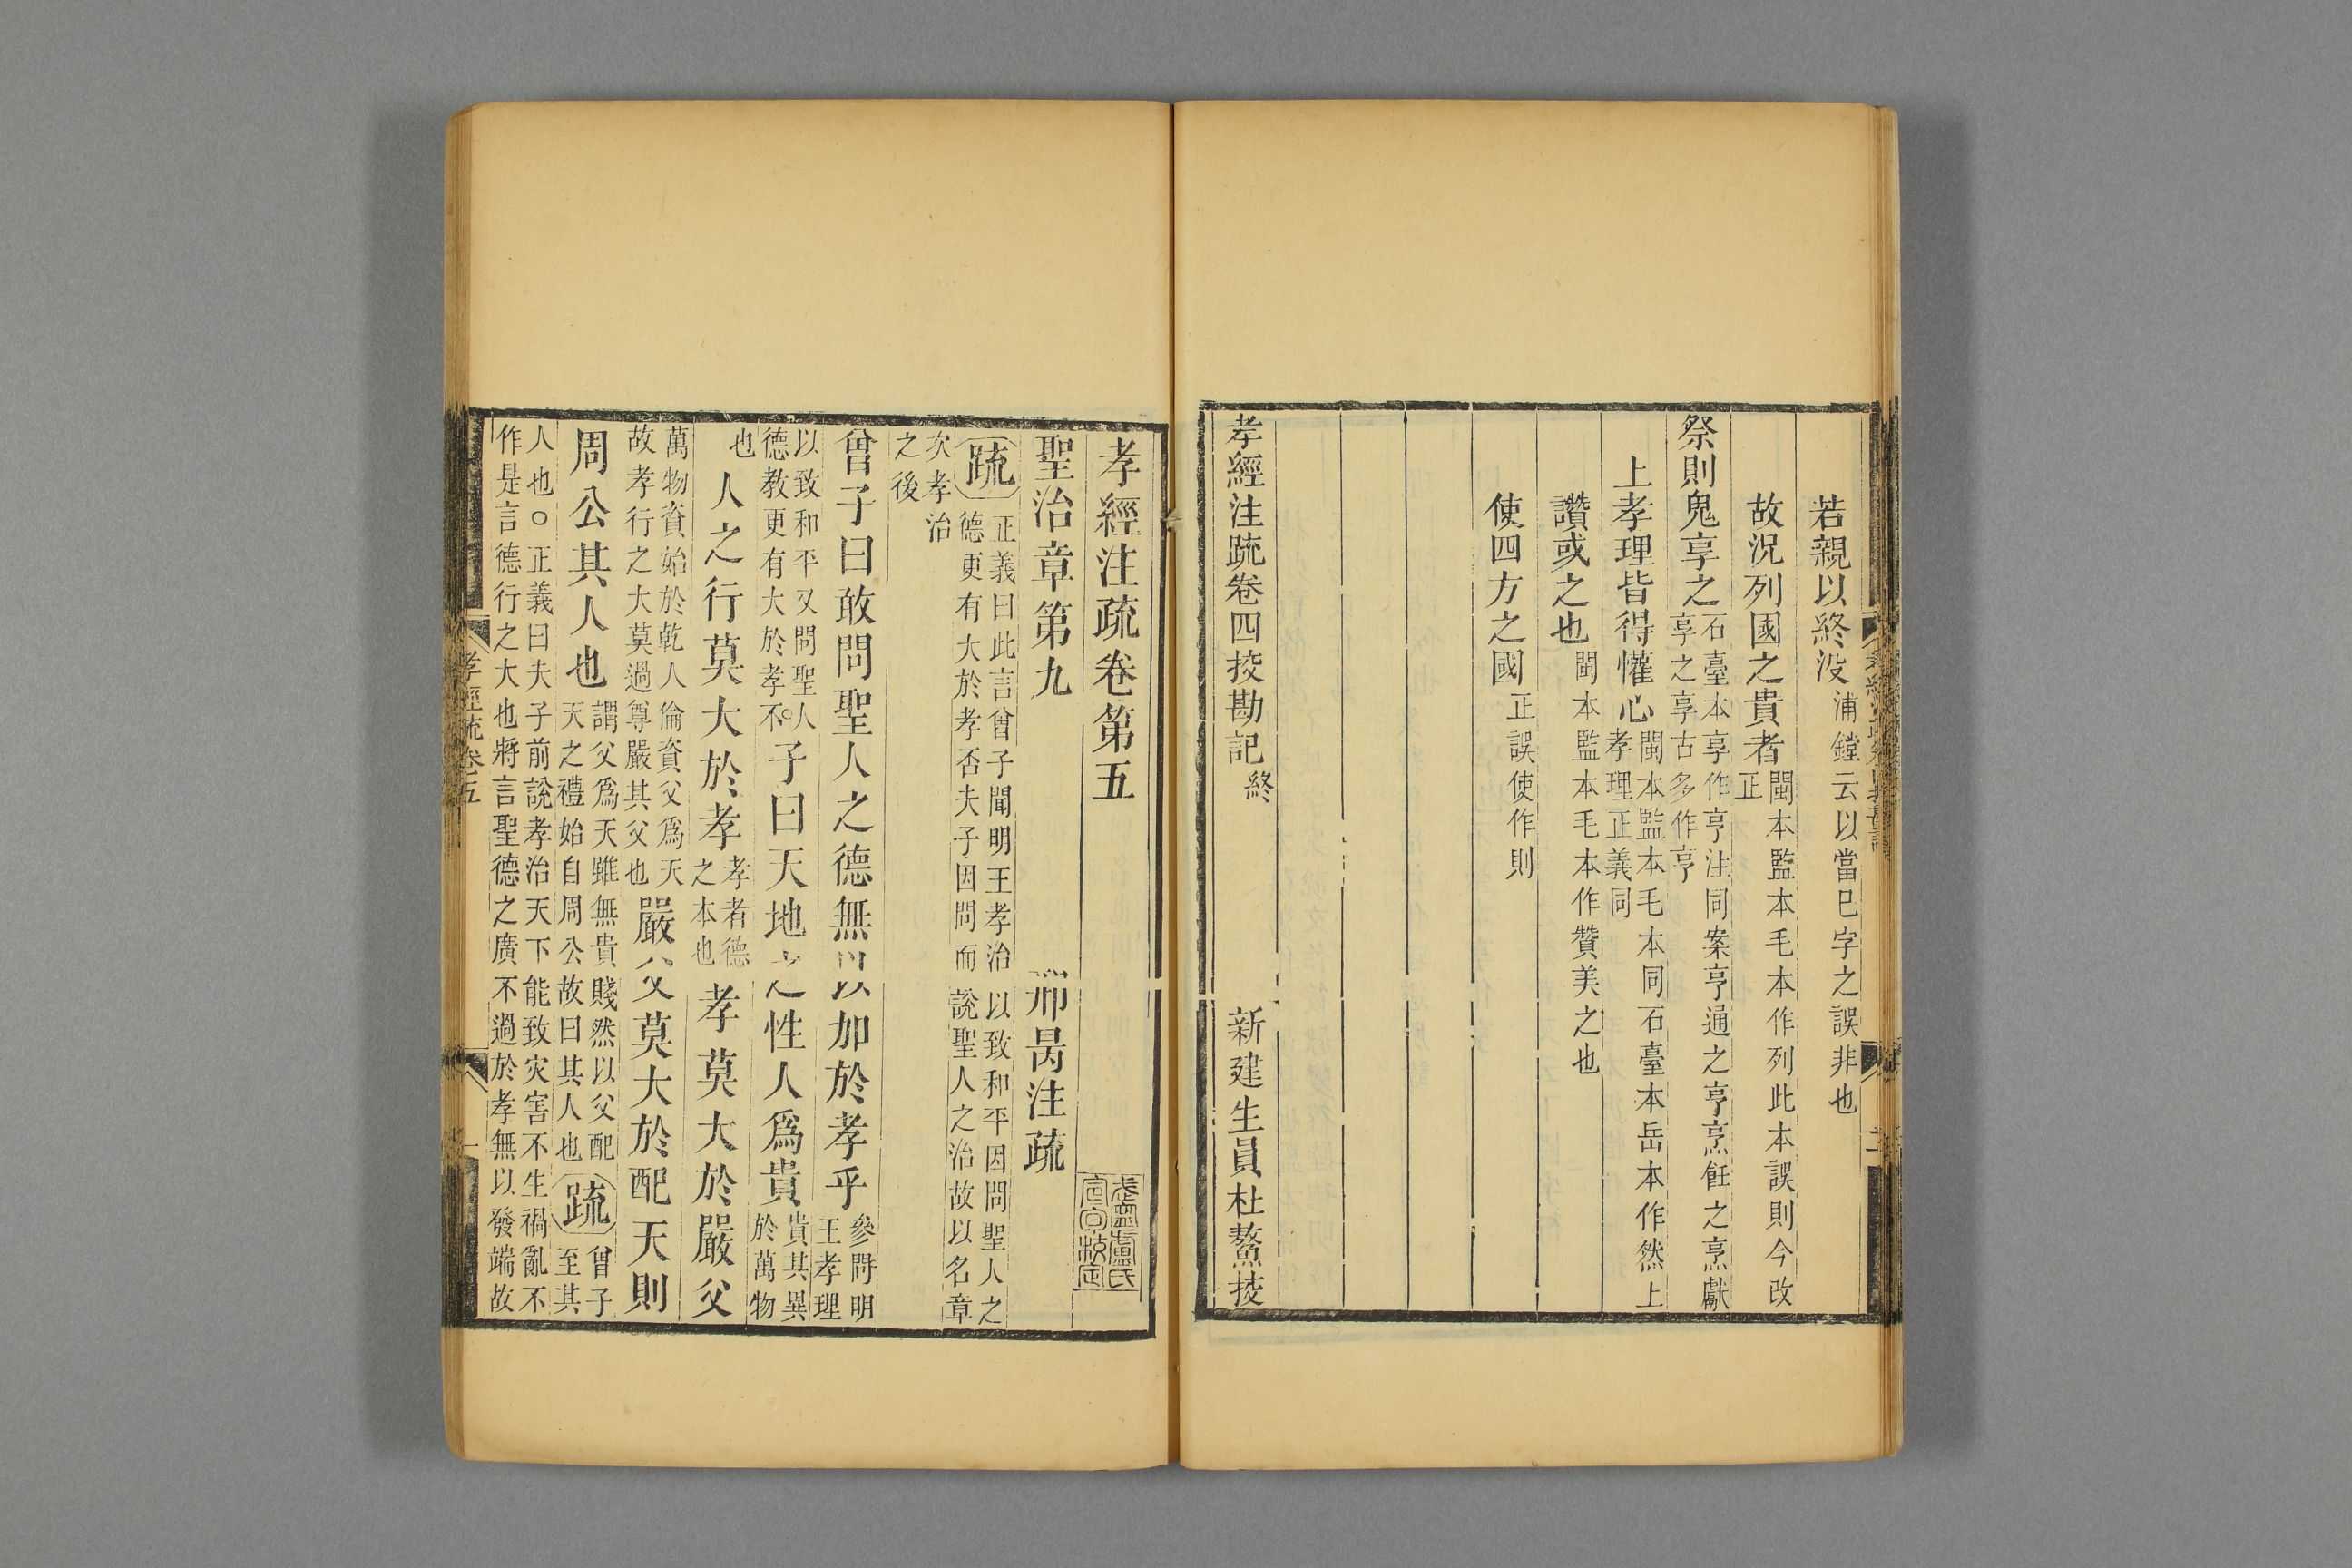 若親以終没浦鏜云以當巳字之誤非也
故況列國之貴者閩本監本毛本作列此本誤則今改正
祭則鬼享之石臺本享作亨注同案亨通之亨烹飪之烹獻享之享古多作亨
上孝理皆得懽心閩本監本毛本同石臺本岳本作然上孝理正義同
讚或之也閩本監本毛本作贊美之也
使四方之國正誤使作則
孝經注疏卷四挍勘記終
新建生員杜鰲挍
孝經注疏卷第五
聖治章第九
邢昺注疏
疏正義曰此言曾子聞明王孝治以致和平因問聖人之德更有大於孝否夫子因問而說聖人之治故以名章
次孝治之後
曾子曰敢問聖人之德無以加於孝乎參問明王孝理
以致和平又問聖人德教更有大於孝不○子曰天地之性人爲貴貴其異於萬物
也人之行莫大於孝孝者德之本也孝莫大於嚴父
萬物資始於乾人倫資父爲天故孝行之大莫過尊嚴其父也嚴父莫大於配天則
周公其人也謂父爲天雖無貴賤然以父配天之禮始自周公故曰其人也疏曾子至其
人也○正義曰夫子前說孝治天下能致灾害不生禍亂不
作是言德行之大也將言聖德之廣不過於孝無以發端故
孝經疏卷五